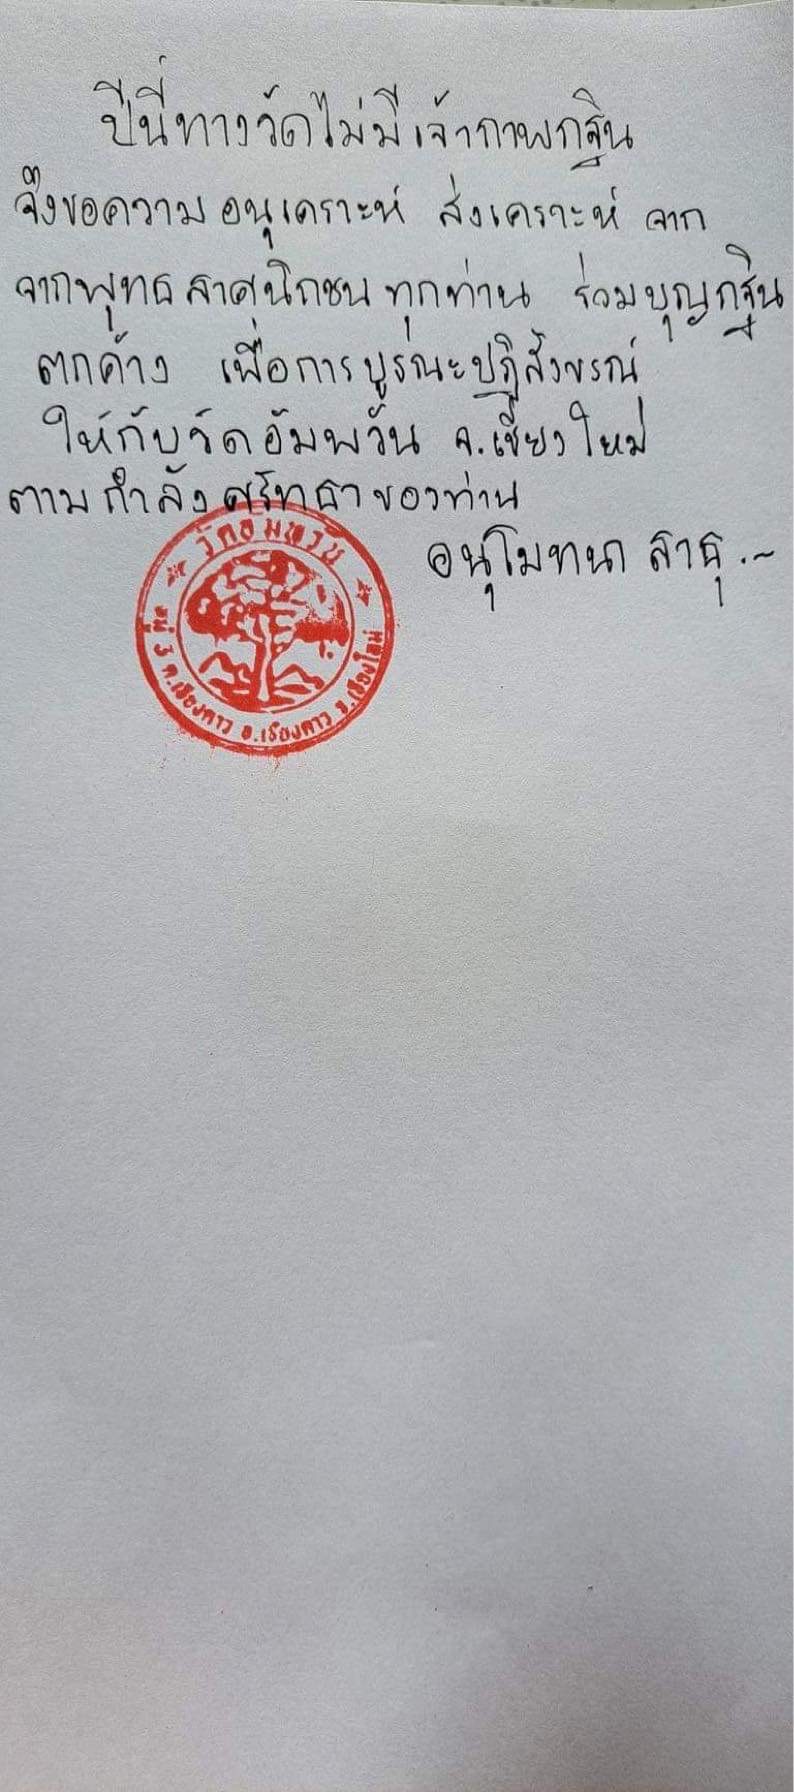 ปีนี้ทางวัดไม่มีเจ้าภาพกฐิน
จึงขอความอนุเคราะห์ ส่งเคราะห์ จาก
จากพุทธศาสนิกชนทุกท่าน ร่วมบุญกฐิน
ตกค้าง เพื่อการบูรณะปฏิสังขรณ์
ให้กับวัดอัมพวัน จ.เชียงใหม่
ตามกำลังศรัทธาของท่าน
อนุโมทนา สาธุ.~
วัดอัมพวัน
หมู่ 3 ต.เชียงดาว อ.เชียงดาว จ.เชียงใหม่